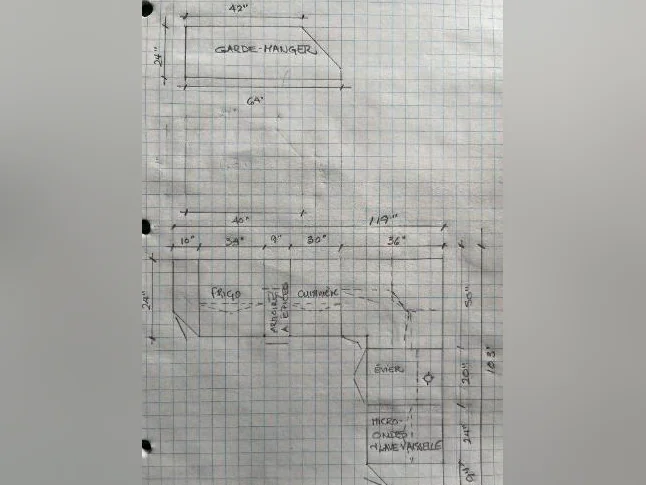 42"
24"
GARDE-MANGER
64"
40"
119"
10"
9"
30"
36"
24"
FRIGO
ARMOIRE
À ÉPICES
CUISINIÈRE
50"
103"
ÉVIER
20"
MICRO-
ONDES
+LAVE VAISSELLE
24"